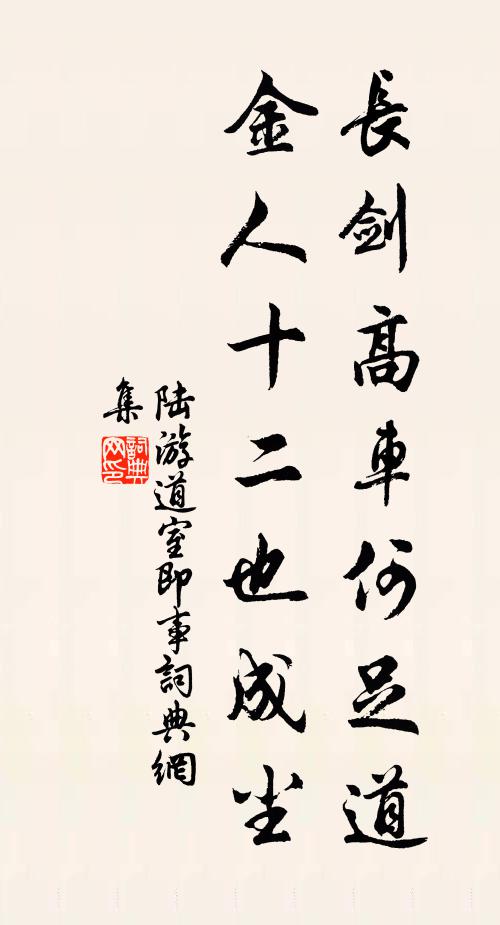 長剑髙車何足道
金人十二也成尘
陆游道室即事詞典網
集
詞典
网印